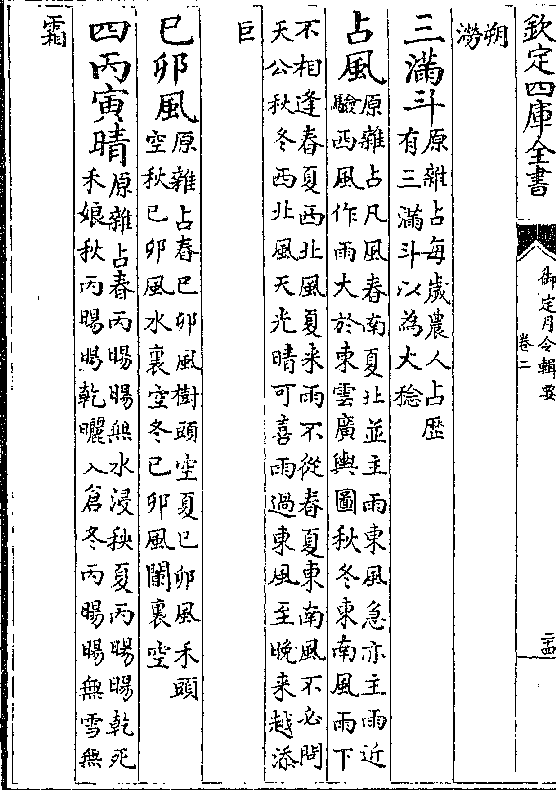 欽定四庫全書
御定月令輯要
卷二
二十四
朔
澇
三滿斗
原雜占每歲農人占歷
有三滿斗以為大稔
占風
原雜占凡風春南夏北並主雨東風急亦主雨近
驗西風作雨大於東雲廣輿圖秋冬東南風雨下
不相逢春夏西北風夏来雨不從春夏東南風不必問
天公秋冬西北風天光晴可喜雨過東風至晚来越添
巨
巳卯風
原雜占春巳卯風樹頭空夏巳卯風禾頭
空秋巳卯風水裏空冬巳卯風闌裏空
四丙寅晴
原雜占春丙暘暘無水浸秧夏丙暘暘乾死
禾娘秋丙暘暘乾曬入倉冬丙暘暘無雪無
霜